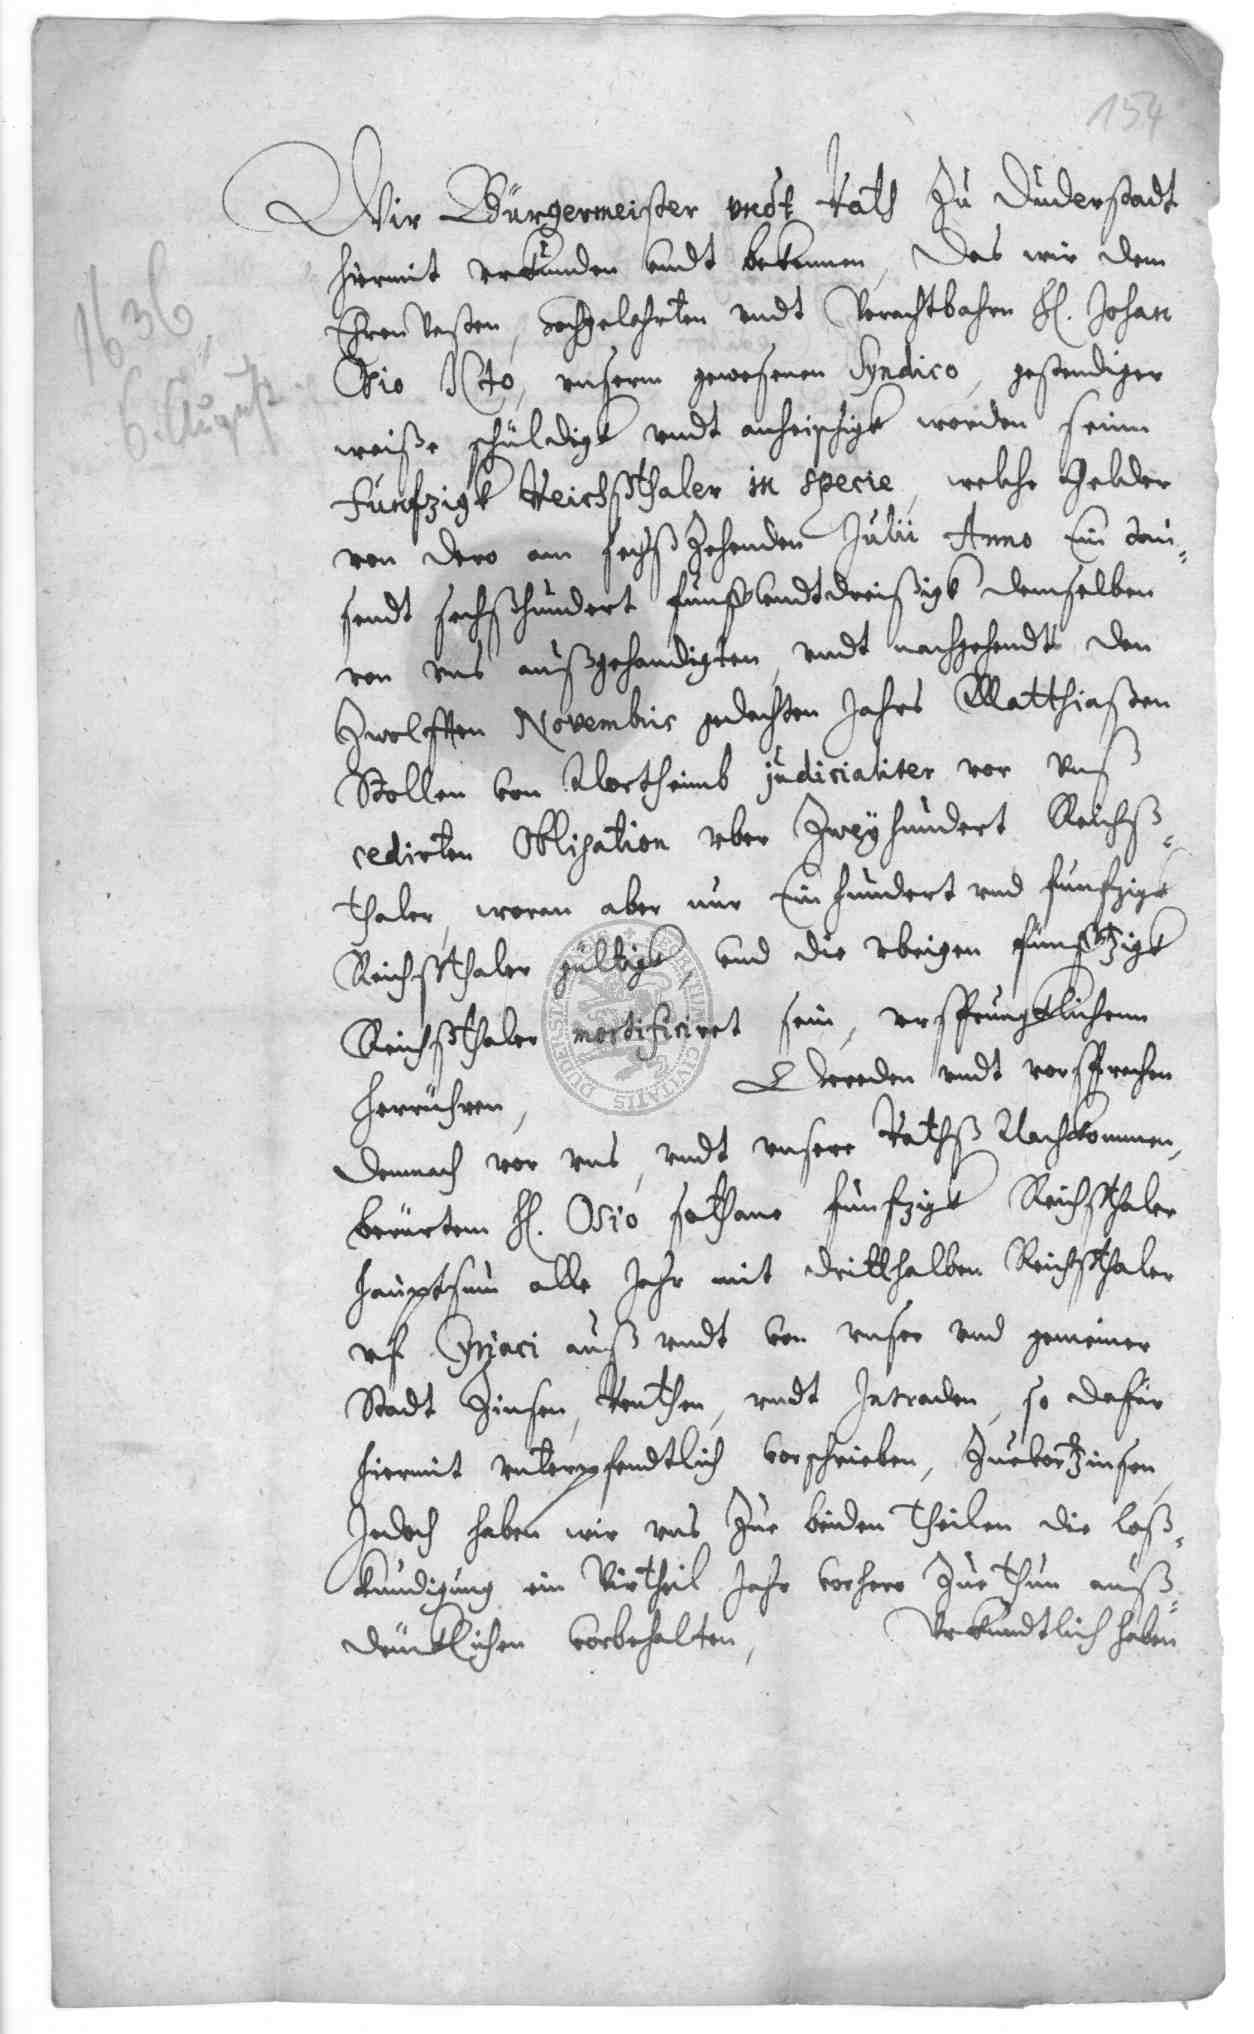 154
1636
6. August
Wir Bürgermeister undt Rath Zu Duderstadt
hiermit urkunden undt bekennen, Das wir dem
EhrenVesten, Hochgelahrten undt Vorachtbahrn H. Johan
Osio ICto, unserm gewesenen Syndico, gestendiger
weiße schüldigk undt anheischigk worden seinn
funfzigk Reichßthaler in specie, welche Gelder
von dero am sechßzehenden Julii Anno Ein tau-
sendt sechßhundert fünffundtdreißigk demselben
von uns außgehandigten, undt nachgehendts den
Zwolfften Novembris gedachten Jahrs Matthiaßen
Stollen von Northeimb judicialiter vor unß
cedirten Obligation uber Zweyhundert Reichß-
thaler, woran aber nur Einhundert und funfzigk
Reichßthaler gültigk, und die ubrigen fünfftzigk
Reichßthaler mortificiret sein, ursprungklichenn
herrühren, Gereden undt vorsprechen
demnach vor uns, undt unsere Rathß Nachkommen,
berürtem H. Osio sothane funfzigk Reichßthaler
hauptsum alle Jahr mit dritthalben Reichßthaler
uf Cyriaci auß undt von unser und gemeiner
Stadt Zinsen, Renthen, undt Intraden, so dafür
hiermit unterpfendtlich vorschrieben, Zuevortzinsen,
Jedoch haben wir uns Zue beiden Theilen die loß-
kundigung ein Virtheil Jahr vorhero Zue thun auß-
drücklichen vorbehalten, Urkundtlich haben
SECRETUM CIVITATIS DUDERSTADT